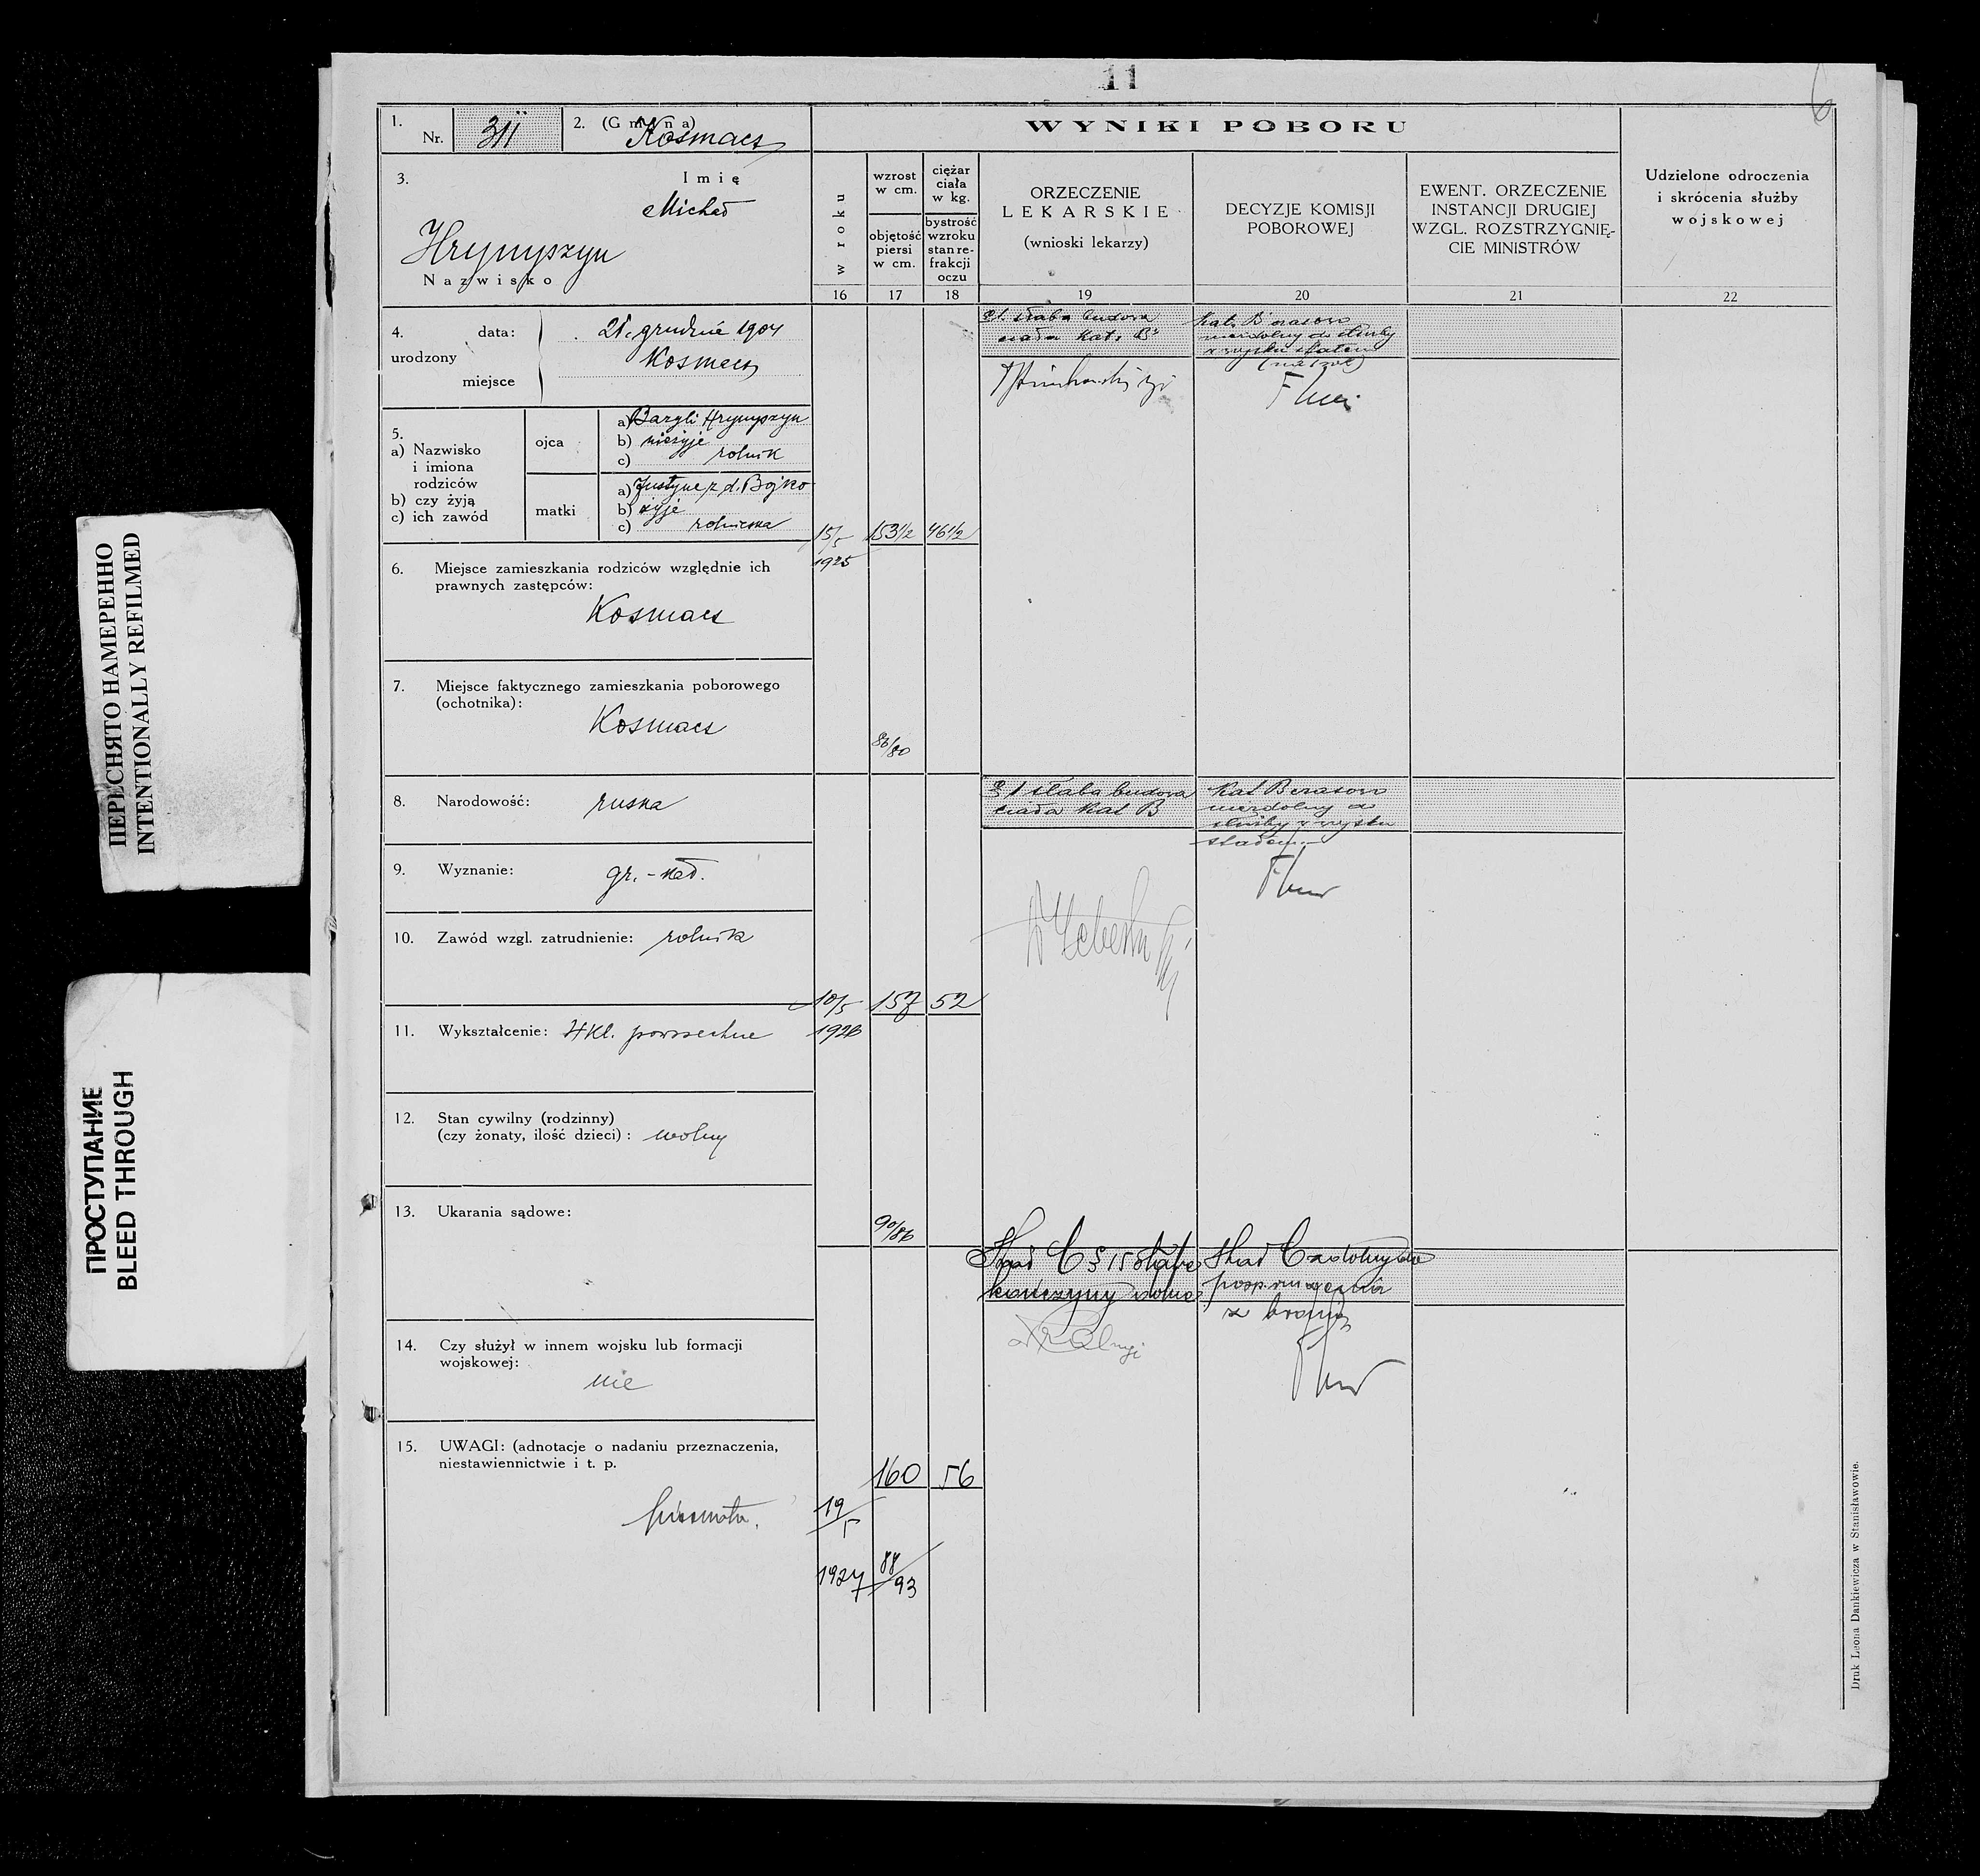 11
6
1.
Nr. 311
2. (Gmina)
Kosmacz
3. Imię
Michał
Hrynyszyn
Nazwisko
WYNIKI POBORU
w roku
wzrost w cm.
objętość piersi w cm.
ciężar ciała w kg.
bystrość wzroku stan re-frakcji oczu
ORZECZENIE
LEKARSKIE
(wnioski lekarzy)
DECYZJE KOMISJI
POBOROWEJ
EWENT. ORZECZENIE
INSTANCJI DRUGIEJ
WZGL. ROZSTRZYGNIĘ-
CIE MINISTRÓW
Udzielone odroczenia
i skrócenia służby
wojskowej
16 17 18 19 20 21 22
4. urodzony
data: 21. grudnia 1904
miejsce Kosmacz
5.
a) Nazwisko
i imiona
rodziców
b) czy żyją
c) ich zawód
ojca
a) Bazyli Hrynyszyn
b) nieżyje
c) rolnik
matki
a) Justyna z d. Bojko
b) żyje
c) rolniczka
6. Miejsce zamieszkania rodziców względnie ich
prawnych zastępców:
Kosmacz
7. Miejsce faktycznego zamieszkania poborowego
(ochotnika):
Kosmacz
8. Narodowość: ruska
9. Wyznanie: gr.-kat.
10. Zawód wzgl. zatrudnienie: rolnik
11. Wykształcenie: 4 kl. powszechne
12. Stan cywilny (rodzinny)
(czy żonaty, ilość dzieci): wolny
13. Ukarania sądowe:
14. Czy służył w innem wojsku lub formacji
wojskowej:
nie
15. UWAGI: (adnotacje o nadaniu przeznaczenia,
niestawiennictwie i t. p.
15/5 153 1/2 46 1/2
1925
83/80
słaba budowa
ciała kat. B
Kat. B czasowo
niezdolny do służby
w wojsku stałem
10/5 157 52
1926
90/86
§ 1 słaba budowa
ciała Kat B
Kat B czasowo
niezdolny do
służby w wojsku
stałem
160 56
19/5
1927 88/93
Kat C § 15 słabe
kończyny dolne
Kat C zdolny do
posp. ruszenia
z bronią
Druk Leona Dankiewicza w Stanisławowie.
ПЕРЕСНЯТО НАМЕРЕННО
INTENTIONALLY REFILMED
ПРОСТУПАНИЕ
BLEED THROUGH